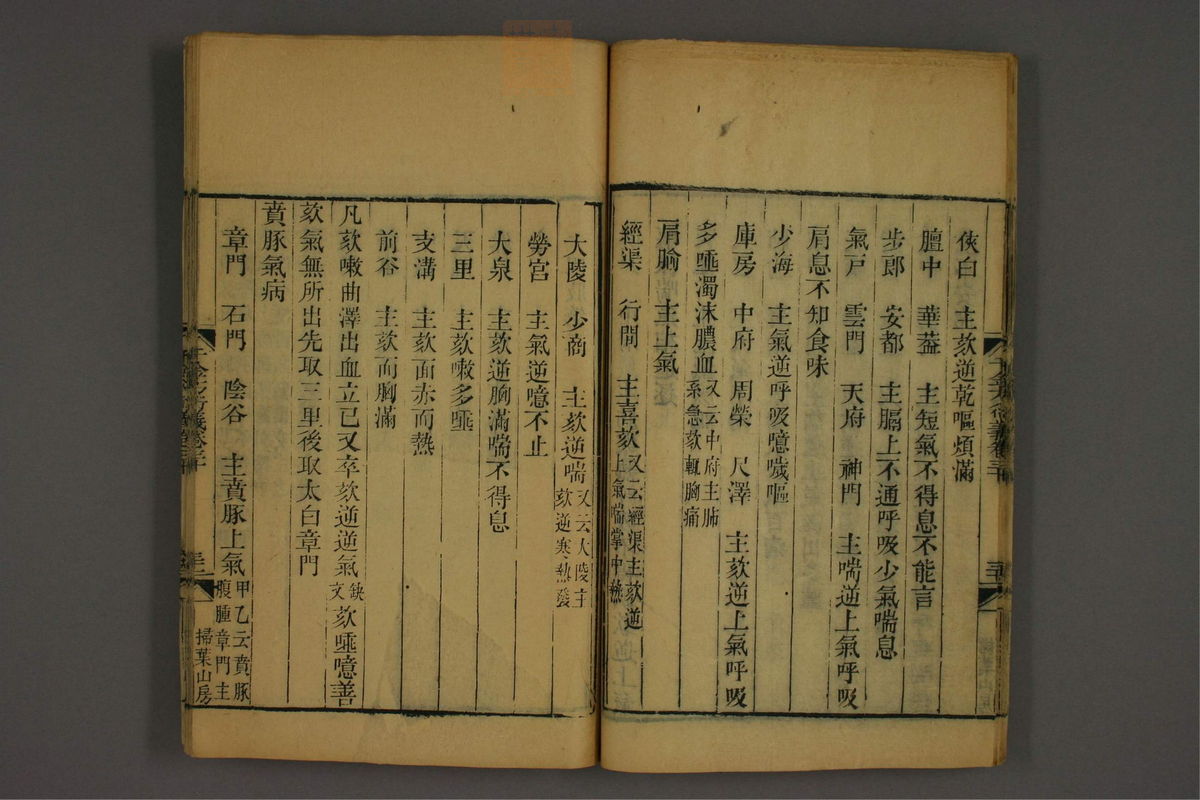 俠白　主欬逆乾嘔煩滿
膻中　華葢　主短氣不得息不能言
步郎　安都　主膈上不通呼吸少氣喘息
氣戶　雲門　天府　神門　主喘逆上氣呼吸
肩息不知食味
少海　主氣逆呼吸噫噦嘔
庫房　中府　周榮　尺澤　主欬逆上氣呼吸
多唾濁沫膿血又云中府主肺系急欬輒胸痛
肩腧　主上氣
經渠　行間　主喜欬又云經渠主欬逆上氣喘掌中熱
大陵　少商　主欬逆喘又云大陵主欬逆寒熱發
勞宮　主氣逆噫不止
大泉　主欬逆胸滿喘不得息
三里　主欬嗽多唾
支溝　主欬面赤而熱
前谷　主欬而胸滿
凡欬嗽曲澤出血立已又卒欬逆逆氣缺文欬唾噫善
欬氣無所出先取三里後取太白章門
賁豚氣病
章門　石門　陰谷　主賁豚上氣甲乙云賁豚腹腫章門主
掃葉山房